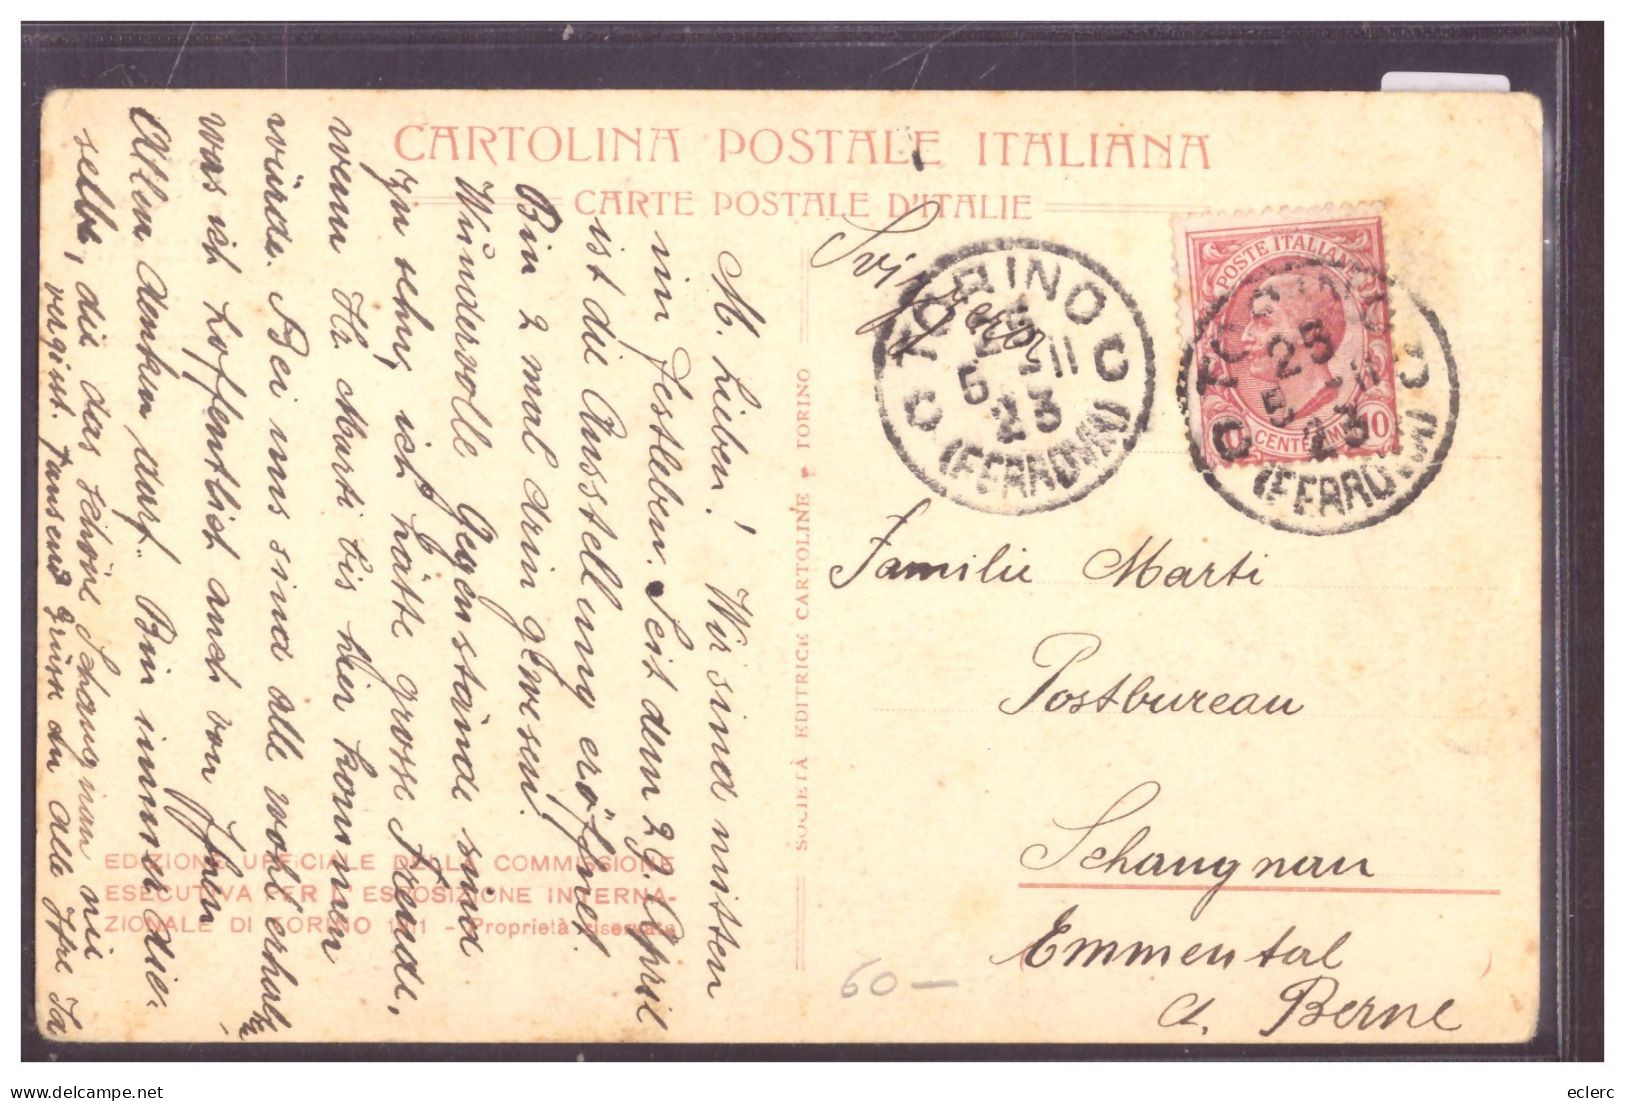 CARTOLINA POSTALE ITALIANA
CARTE POSTALE D'ITALIE
M. Lieben! Wir sind mitten
im Festleben. Seit dem 29. April
ist die Ausstellung eröffnet
Bin 2 mal drin gewesen.
Wundervolle Gegenstände sind
zu sehn, ich hätte grosse Freude,
wenn Hr Marti bis hier kommen
würde. Bei uns sind alle wohl erhalt
was ich hoffentlich auch von Ihnen
Allen denken darf. Bin immer die-
selbe, die das schöne Schangnau nie
vergisst. Tausend Grüsse an alle Ihre
EDIZIONE UFFICIALE DELLA COMMISSIONE
ESECUTIVA PER L'ESPOSIZIONE INTERNA-
ZIONALE DI TORINO 1911 - Proprietà riservata
SOCIETÀ EDITRICE CARTOLINE • TORINO
Svizzera
TORINO
25
5 - 11
23
(FERROVIA)
POSTE ITALIANE
CENTESIMI 10
TORINO
25
5 - 11
23
(FERROVIA)
Familie Marti
Postbureau
Schangnau
Emmental
Ct. Berne
60 —
eclerc